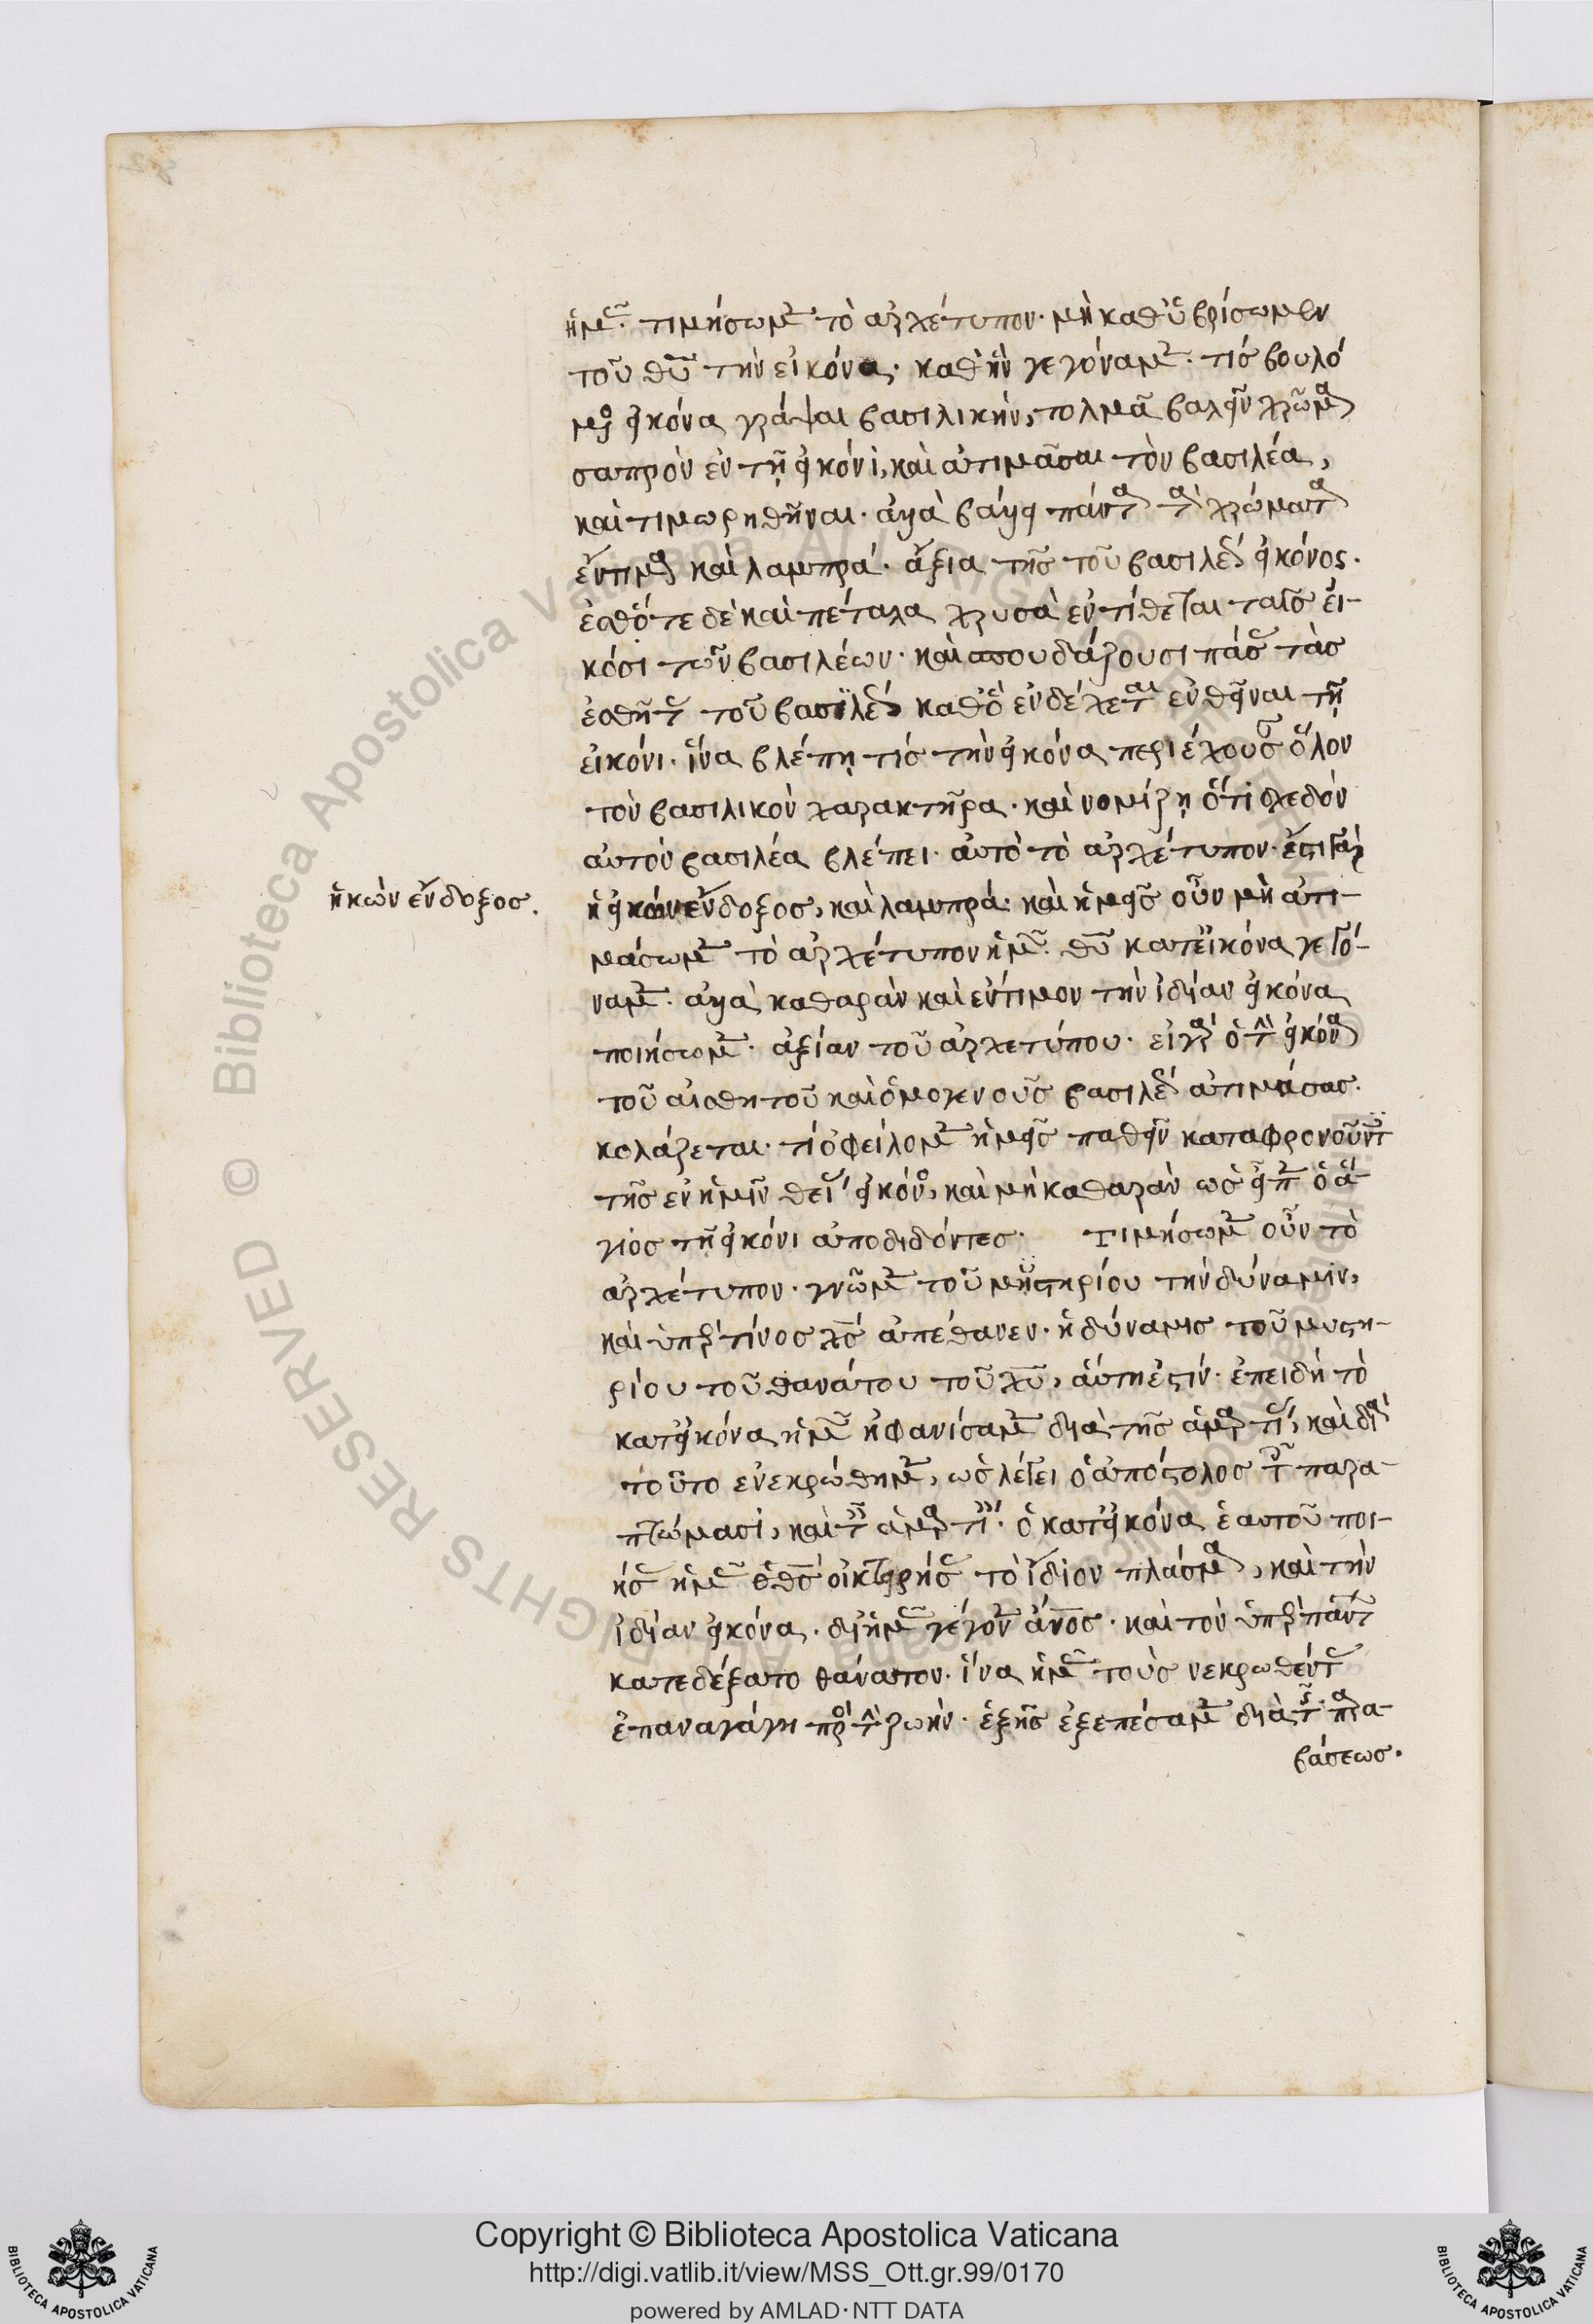 ἡμῶν. τιμήσωμεν τὸ ἀρχέτυπον. μὴ καθ' ὑβρίσωμεν
τοῦ θυ τὴν εἰκόνα. καθ' ἣν γεγόναμεν. τίς βουλό
μενος εἰκόνα γράψαι βασιλικὴν, τολμᾶ βαλεῖν χρῶμα
σαπρὸν ἐν τῇ εἰκόνι, καὶ ἀτιμᾶσαι τὸν βασιλέα,
καὶ τιμωρηθῆναι. ἀλλὰ βάλλει πάντα τὰ χρώματα
ἔντιμα καὶ λαμπρά. ἄξια τῆς τοῦ βασιλέως εἰκόνος.
ἐσθότε δὲ καὶ πέταλα χρυσὰ ἐντίθεται ταῖς εἰ-
κόσι τῶν βασιλέων. καὶ σπουδάζουσι πάσας τὰς
ἐσθῆτας τοῦ βασιλέως καθ' ὃ ἐνδέχεται ἐνθεῖναι τῇ
εἰκόνι. ἵνα βλέπῃ τίς τὴν εἰκόνα περιέχουσαν ὅλον
τὸν βασιλικὸν χαρακτῆρα. καὶ νομίζῃ ὅτι σχεδὸν
αὐτὸν βασιλέα βλέπει. αὐτὸ τὸ ἀρχέτυπον. ἔστι γὰρ
ἡκὼν ἔνδοξος.
ἡ εἰκὼν ἔνδοξος, καὶ λαμπρά. καὶ ἡμεῖς οὖν μὴ ἀτι-
μάσωμεν τὸ ἀρχέτυπον ἡμῶν. θυ κατ' εἰκόνα γεγό-
ναμεν. ἀλλὰ καθαρὰν καὶ ἔντιμον τὴν ἰδίαν εἰκόνα
ποιήσωμεν. ἀξίαν τοῦ ἀρχετύπου. εἰ γὰρ ὁ τὴν εἰκόνα
τοῦ αἰσθητοῦ καὶ ὁμογενοῦς βασιλέως ἀτιμάσας.
κολάζεται. τί ὀφείλομεν ἡμεῖς παθεῖν καταφρονοῦντες
τῆς ἐν ἡμῖν θείας εἰκόνος, καὶ μὴ καθαρὰν ὡς εἶπεν ὁ ἅ-
γιος τῇ εἰκόνι ἀποδιδόντες. Τιμήσωμεν οὖν τὸ
ἀρχέτυπον. γνῶμεν τοῦ μυστηρίου τὴν δύναμιν,
καὶ ὑπὲρ τίνος χς ἀπέθανεν. ἡ δύναμις τοῦ μυστη-
ρίου τοῦ θανάτου τοῦ χυ, αὕτη ἐστίν. ἐπειδὴ τὸ
κατ' εἰκόνα ἡμῶν ἠφανίσαμεν διὰ τῆς ἁμαρτίας, καὶ διὰ
τοῦτο ἐνεκρώθημεν, ὡς λέγει ὁ ἀπόστολος τοῖς παρα-
πτώμασι, καὶ ταῖς ἁμαρτίαις. ὁ κατ' εἰκόνα ἑαυτοῦ ποι-
ήσας ἡμᾶς ὁ θς οἰκτειρήσας τὸ ἴδιον πλάσμα, καὶ τὴν
ἰδίαν εἰκόνα. δι' ἡμᾶς γέγονεν ἄνος. καὶ τὸν ὑπὲρ πάντων
κατεδέξατο θάνατον. ἵνα ἡμᾶς τοὺς νεκρωθέντας
ἐπαναγάγη πρὸς τὴν ζωήν. ἐξῆς ἐξεπέσαμεν διὰ τῆς παρα-
βάσεως.
Copyright © Biblioteca Apostolica Vaticana
http://digi.vatlib.it/view/MSS_Ott.gr.99/0170
powered by AMLAD·NTT DATA